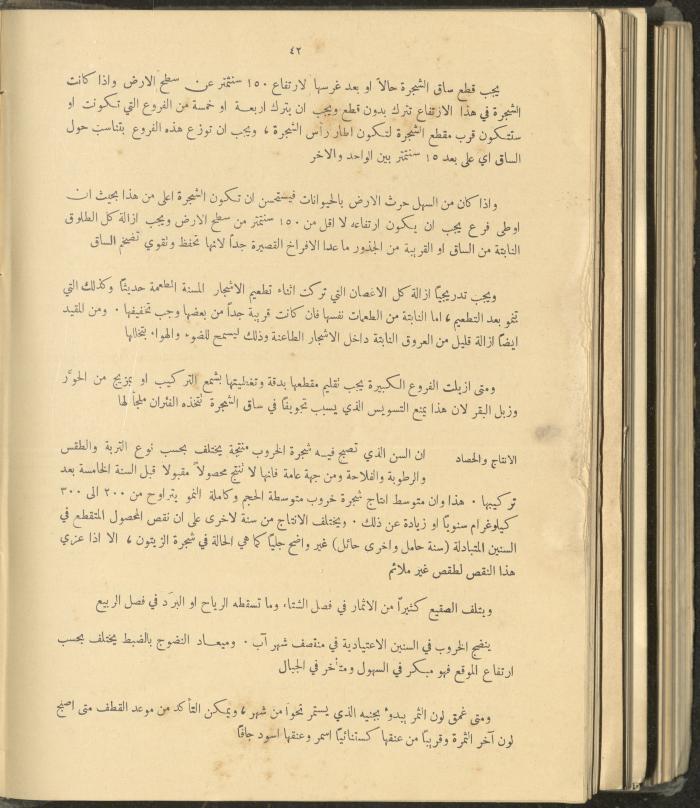 ٤٢
يجب قطع ساق الشجرة حالاً او بعد غرسها لارتفاع ١٥٠ سنتمتر عن سطح الارض واذا كانت
الشجرة في هذا الارتفاع تترك بدون قطع ويجب ان يترك اربعة او خمسة من الفروع التي تكونت او
ستتكون قرب مقطع الشجرة لتكون اطار رأس الشجرة ، ويجب ان توزع هذه الفروع بتناسب حول
الساق اي على بعد ١٥ سنتمتر بين الواحد والاخر
واذا كان من السهل حرث الارض بالحيوانات فيستحسن ان تكون الشجرة اعلى من هذا بحيث ان
اوطى فرع يجب ان يكون ارتفاعه لا اقل من ١٥٠ سنتمتر من سطح الارض ويجب ازالة كل الطلوق
النابتة من الساق او القريبة من الجذور ما عدا الافراخ القصيرة جداً لانها تحفظ وتقوي تضخم الساق
ويجب تدريجيًا ازالة كل الاغصان التي تركت اثناء تطعيم الاشجار المسنة المطعمة حديثًا وكذلك التي
تنمو بعد التطعيم ، اما النابتة من الطعمات نفسها فان كانت قريبة جداً من بعضها وجب تخفيفها . ومن المفيد
ايضًا ازالة قليل من العروق النابتة داخل الاشجار الطاعنة وذلك ليسمح للضوء والهواء بتخللها
ومتى ازيلت الفروع الكبيرة يجب تقليم مقطعها بدقة وتغطيتها بشمع التركيب او بمزيج من الحوّر
وزبل البقر لان هذا يمنع التسويس الذي يسبب تجويفًا في ساق الشجرة تتخذه الفئران ملجأ لها
الانتاج والحصاد ان السن الذي تصبح فيه شجرة الخروب منتجة يختلف بحسب نوع التربة والطقس
والرطوبة والفلاحة ومن جهة عامة فانها لا تنتج محصولاً مقبولا قبل السنة الخامسة بعد
تركيبها . هذا وان متوسط انتاج شجرة خروب متوسطة الحجم وكاملة النمو يتراوح من ٢٠٠ الى ٣٠٠
كيلوغرام سنويًا او زيادة عن ذلك . ويختلف الانتاج من سنة لاخرى على ان نقص المحصول المتقطع في
السنين المتبادلة (سنة حامل واخرى حائل) غير واضح جليًا كما هي الحالة في شجرة الزيتون ، الا اذا عزي
هذا النقص لطقس غير ملائم
ويتلف الصقيع كثيراً من الاثمار في فصل الشتاء وما تسقطه الرياح او البرَد في فصل الربيع
ينضج الخروب في السنين الاعتيادية في منتصف شهر آب . وميعاد النضوج بالضبط يختلف بحسب
ارتفاع الموقع فهو مبكر في السهول ومتأخر في الجبال
ومتى غمق لون الثمر يبدوء بجنيه الذي يستمر نحواً من شهر ، ويمكن التأكد من موعد القطف متى اصبح
لون آخر الثمرة وقريبًا من عنقها كستنائيًا اسمر وعنقها اسود جافًا